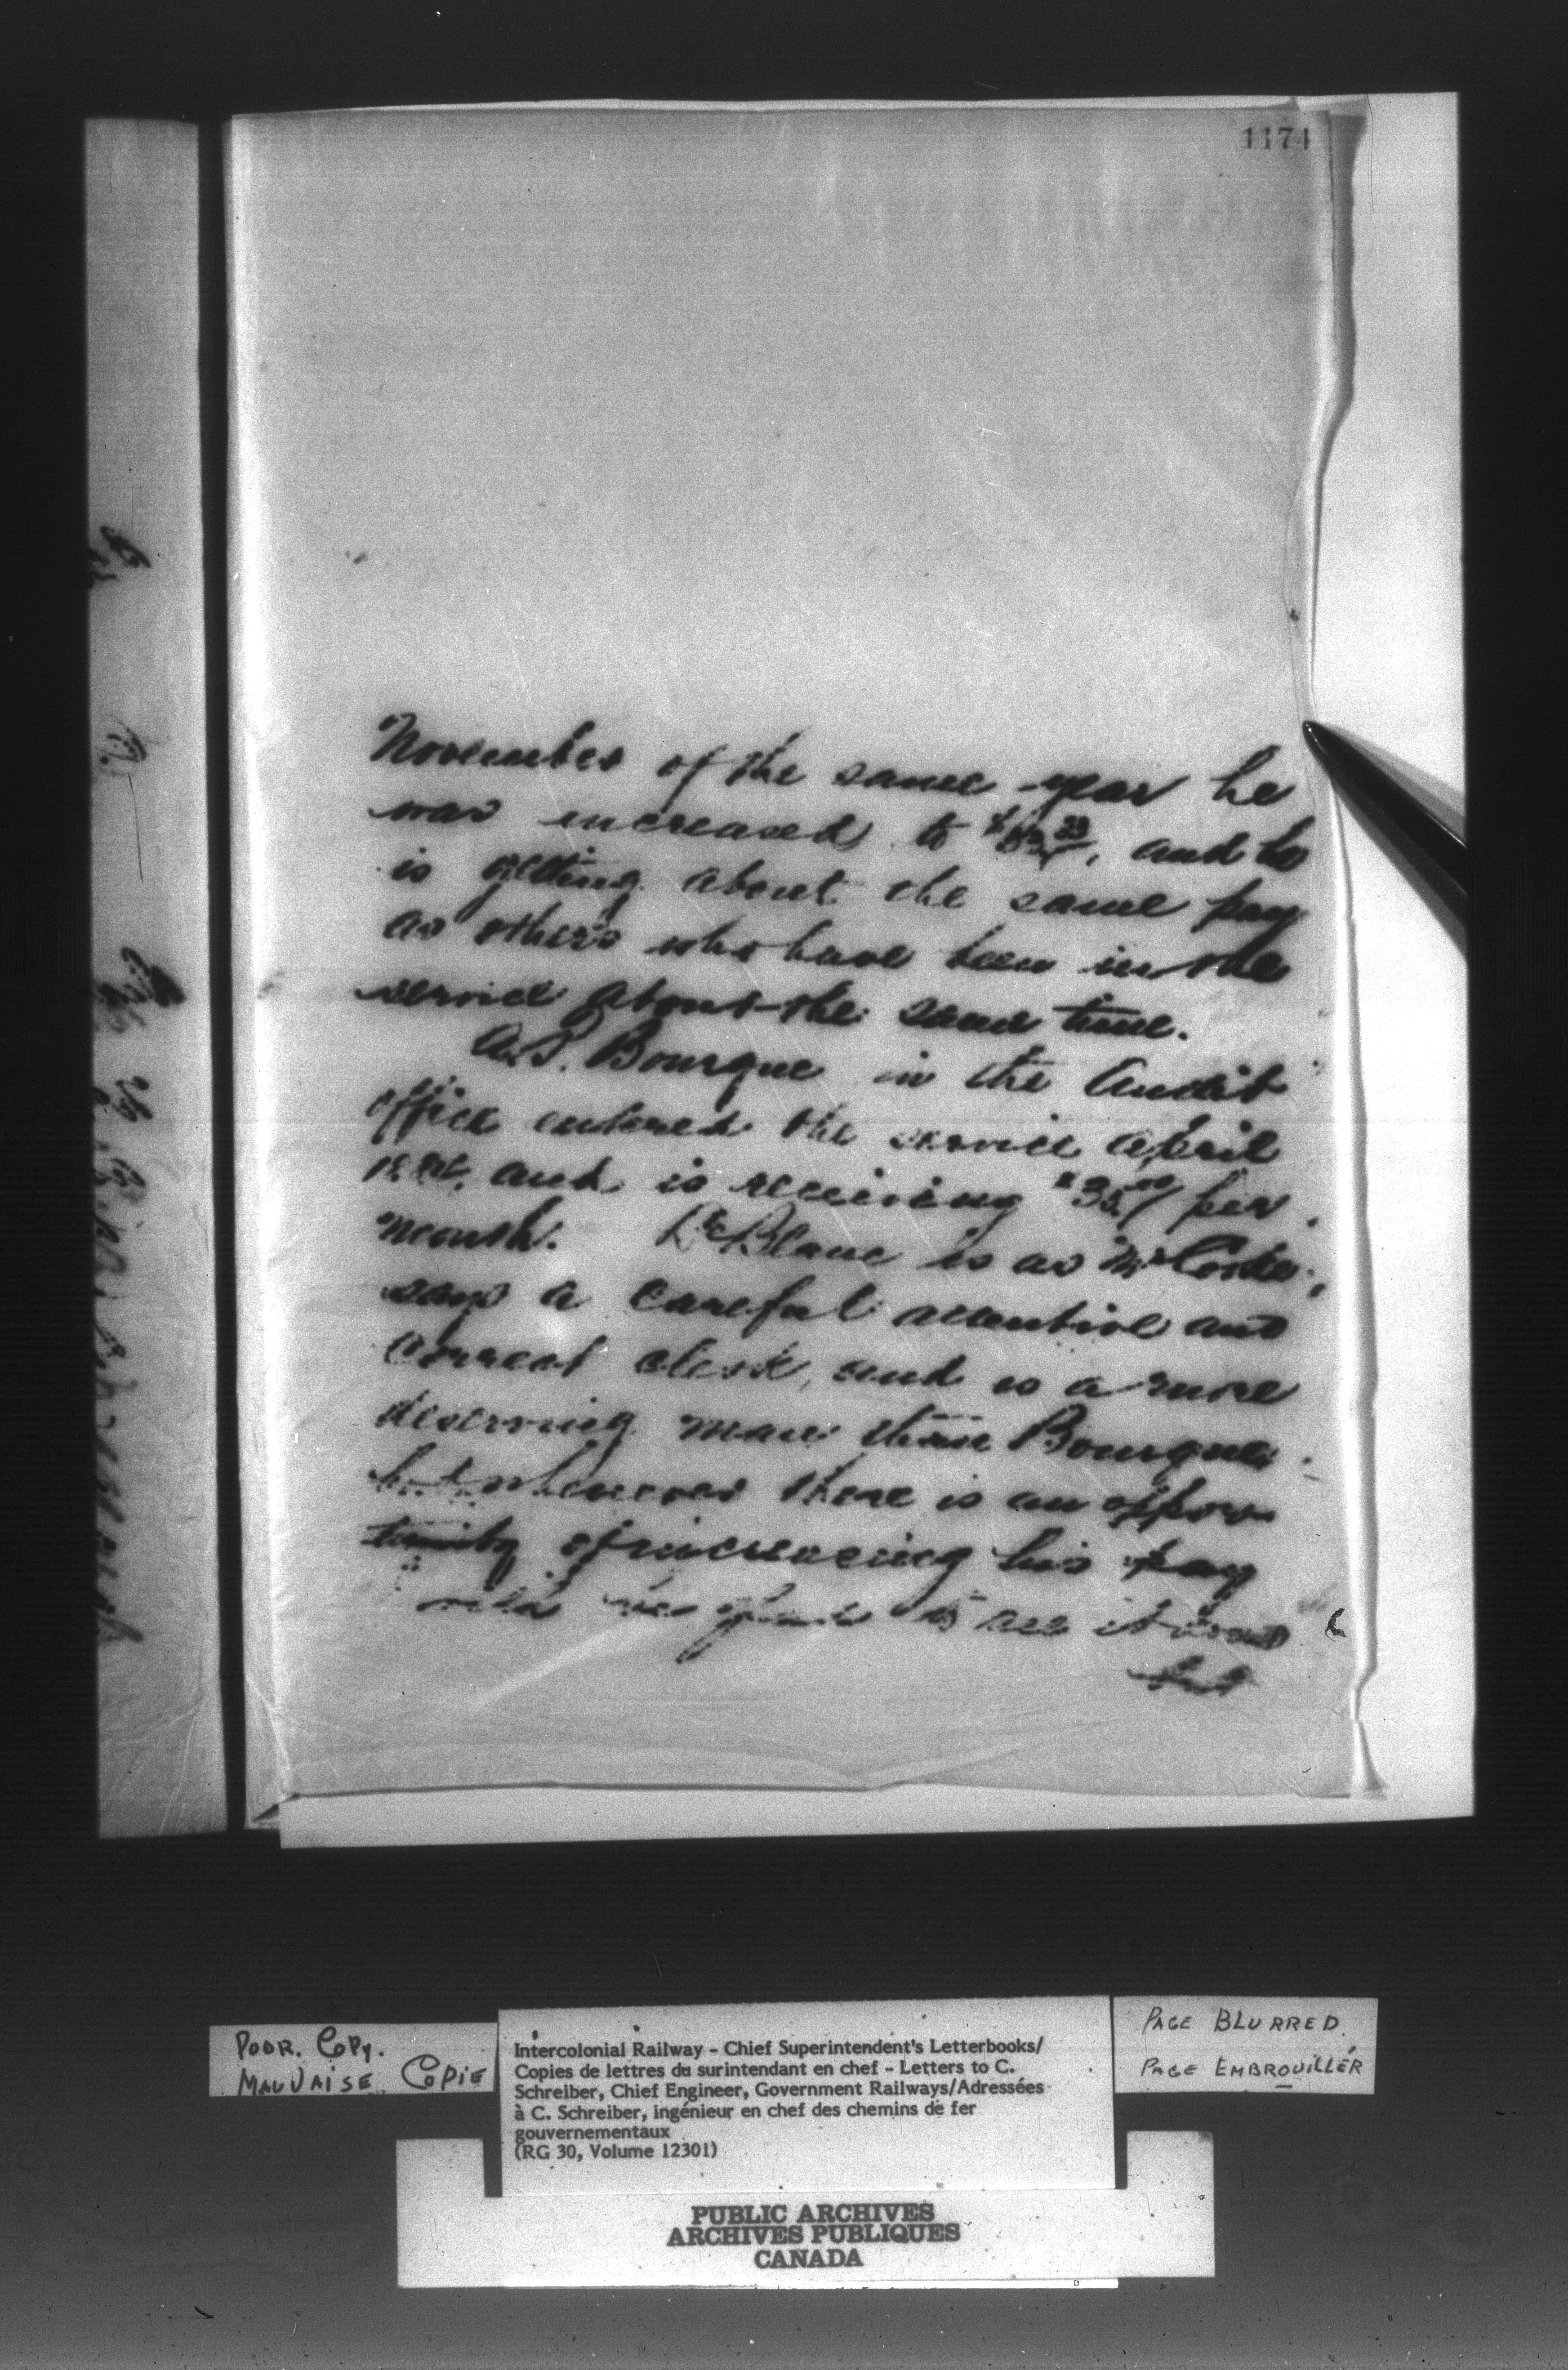 1174
November of the same year he
was increased to and he
is getting about the same pay
as others who have been in the
service about the same time.
A.P. Bourque in the Audit
office entered the service April
and is receiving $35.00/ per
month. LeBlanc is as Mr
says a careful attentive and
correct clerk, and is a more
deserving man than Bourque.
but whenever there is an oppor
tunity of increasing his pay
to see it
but
POOR. COPY.
MAUVAISE COPIE
Intercolonial Railway - Chief Superintendent's Letterbooks/
Copies de lettres du surintendant en chef - Letters to C.
Schreiber, Chief Engineer, Government Railways/Adressées
à C. Schreiber, ingénieur en chef des chemins de fer
gouvernementaux
(RG 30, Volume 12301)
PAGE BLURRED.
PAGE EMBROUILLÉR
PUBLIC ARCHIVES
ARCHIVES PUBLIQUES
CANADA